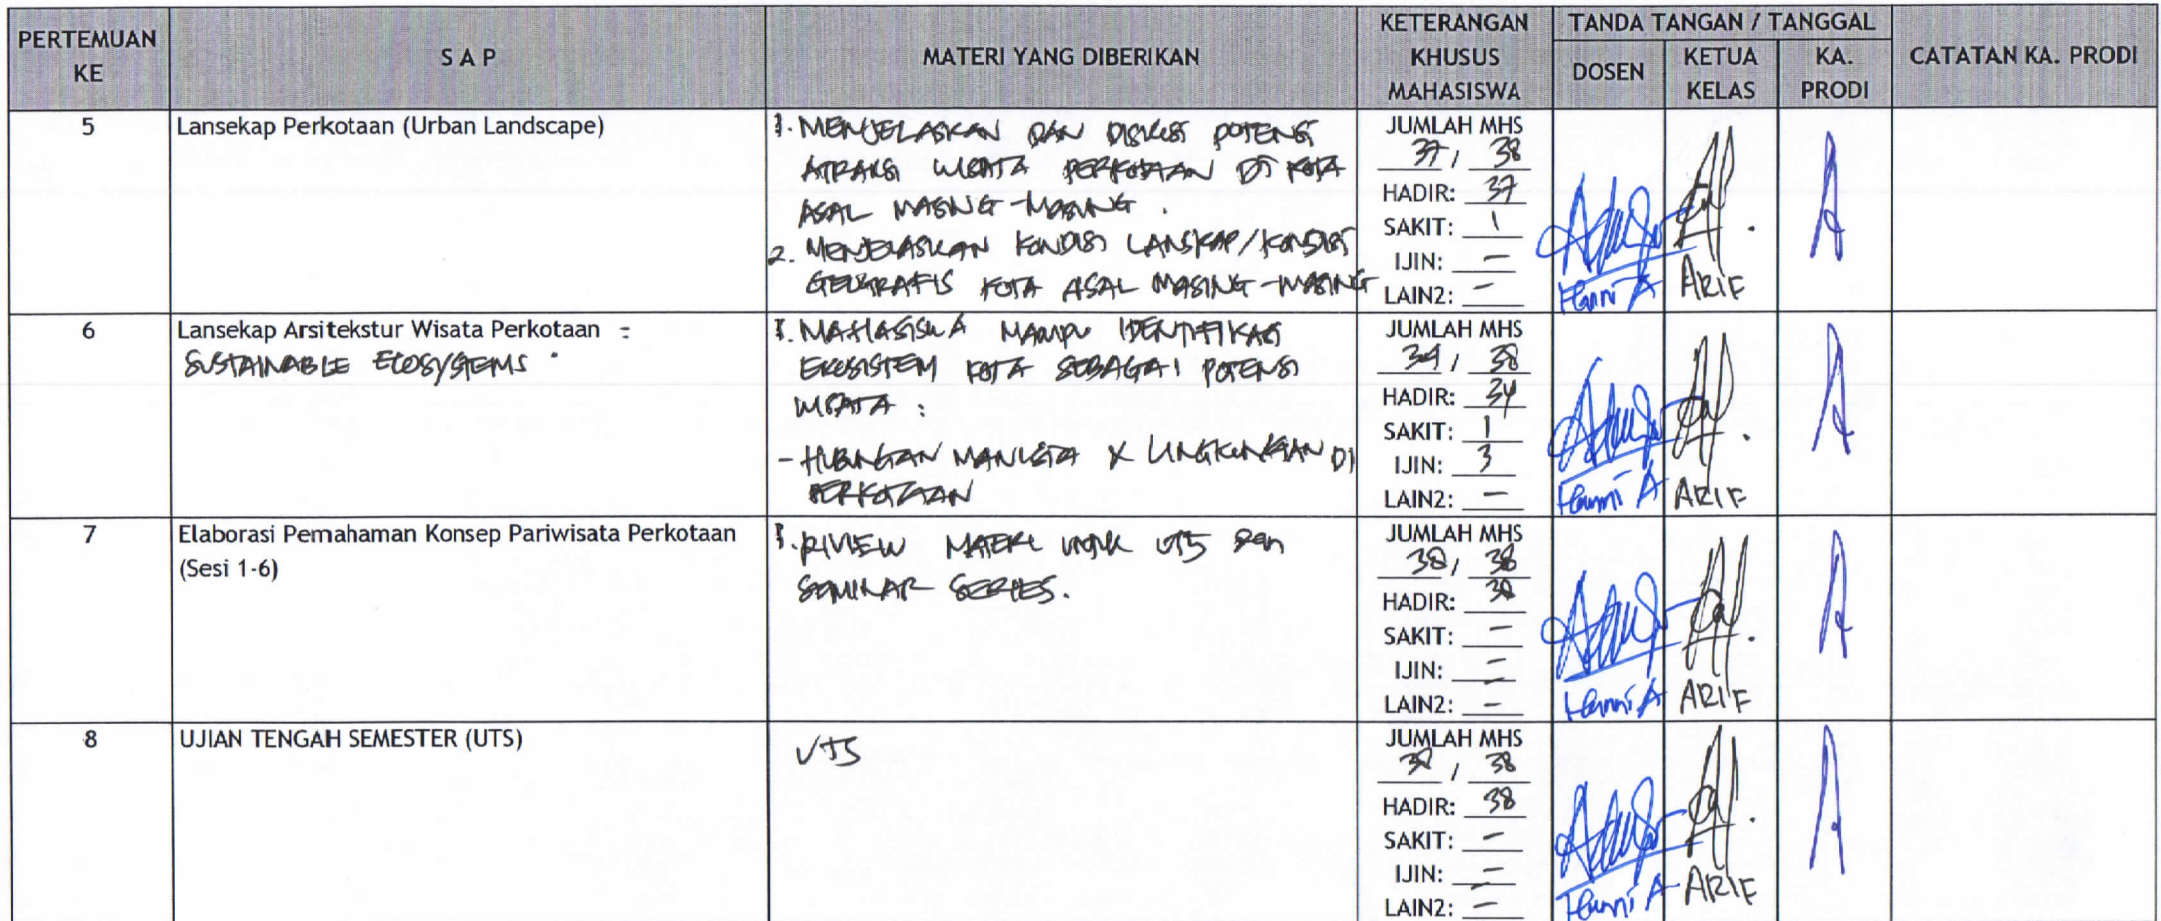 PERTEMUAN KE
S A P
MATERI YANG DIBERIKAN
KETERANGAN KHUSUS MAHASISWA
TANDA TANGAN / TANGGAL
DOSEN
KETUA KELAS
KA. PRODI
CATATAN KA. PRODI
5
Lansekap Perkotaan (Urban Landscape)
1. MENJELASKAN DAN DISKUSI POTENSI
ATRAKSI WISATA PERKOTAAN DI KOTA
ASAL MASING-MASING.
2. MENJELASKAN KONDISI LANSKAP/KONDISI
GEOGRAFIS KOTA ASAL MASING-MASING
JUMLAH MHS
37 / 38
HADIR: 37
SAKIT: 1
IJIN: -
LAIN2: -
Hanni A
ARIF
6
Lansekap Arsitekstur Wisata Perkotaan :
SUSTAINABLE ECOSYSTEMS.
1. MAHASISWA MAMPU IDENTIFIKASI
EKOSISTEM KOTA SEBAGAI POTENSI
WISATA :
- HUBUNGAN MANUSIA X LINGKUNGAN DI
PERKOTAAN
JUMLAH MHS
34 / 38
HADIR: 34
SAKIT: 1
IJIN: 3
LAIN2: -
Hanni A
ARIF
7
Elaborasi Pemahaman Konsep Pariwisata Perkotaan
(Sesi 1-6)
1. RIVIEW MATERI UNTUK UTS DAN
SEMINAR SERIES.
JUMLAH MHS
38 / 38
HADIR: 38
SAKIT: -
IJIN: -
LAIN2: -
Hanni A
ARIF
8
UJIAN TENGAH SEMESTER (UTS)
UTS
JUMLAH MHS
38 / 38
HADIR: 38
SAKIT: -
IJIN: -
LAIN2: -
Hanni A
ARIF